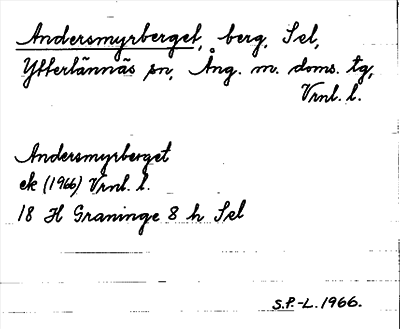 Andersmyrberget, berg, Sel,
Ytterlännäs sn, Ång. m. doms. tg,
Vrnl. l.
Andersmyrberget
ek (1966) Vrnl. l.
18 H Graninge 8 h Sel
S.P.-L. 1966.